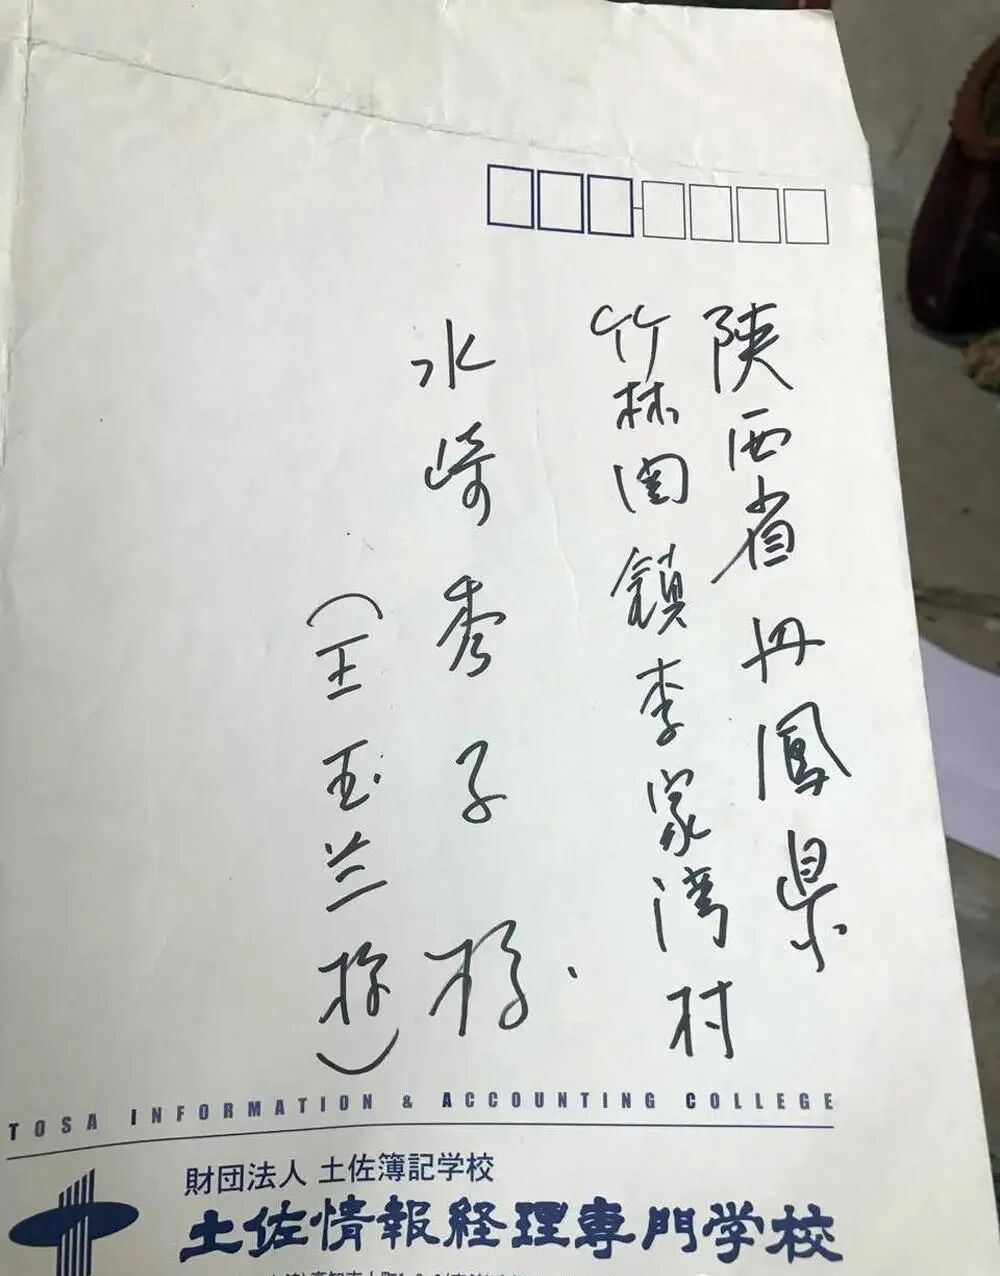 陝西省丹鳳県
竹林関鎮李家湾村
水崎秀子様
(王玉兰様)
TOSA INFORMATION & ACCOUNTING COLLEGE
財団法人 土佐簿記学校
土佐情報経理専門学校